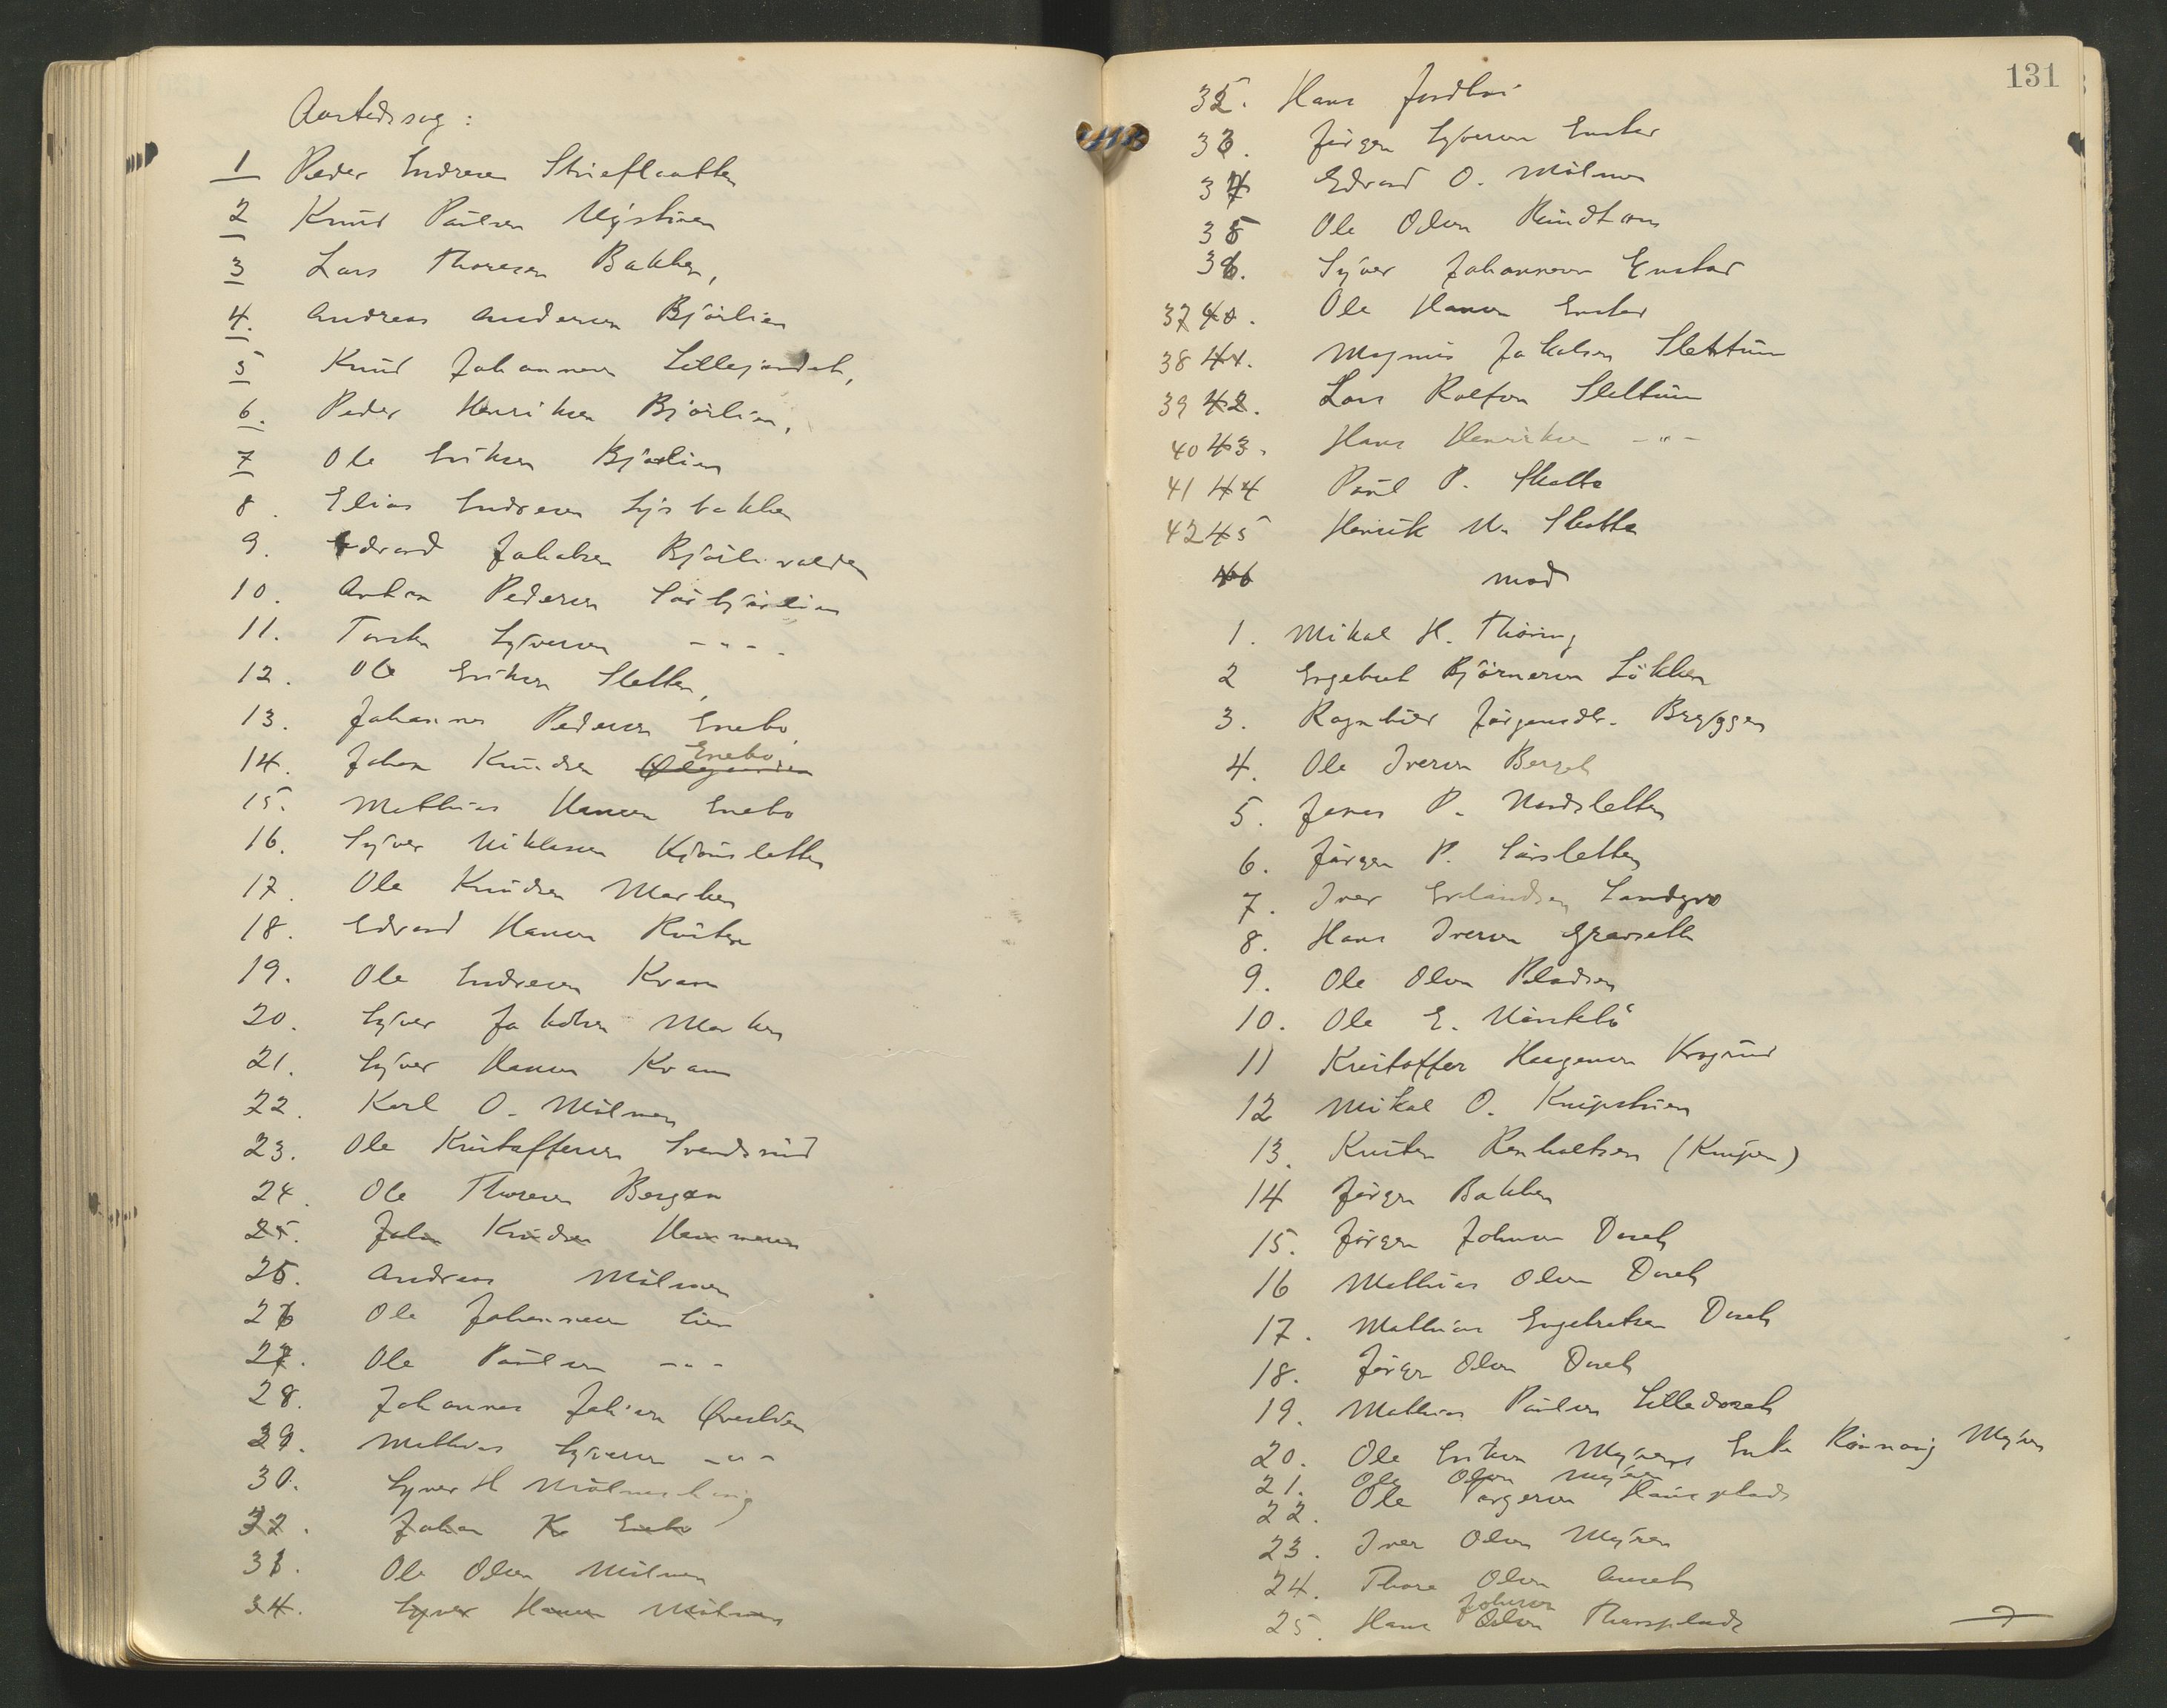 Aastedssag:
1 Peder Endresen Strieflaatten
2 Knud Paulsen Nystuen
3 Lars Thoresen Bakken,
4. Andreas Andersen Bjørlien
5 Knud Johannesen Lillejordet,
6. Peder Henriksen Bjørlien,
7 Ole Eriksen Bjørlien
8. Elias Endresen Lysbakken
9. Edvard Jakobsen Bjørlivolden
10. Anton Pedersen Sørbjørlien
11. Torsten Syversen - " -
12. Ole Eriksen Sletten,
13. Johannes Pedersen Enebo,
14. Johan Knudsen Enebo
15. Mathias Hansen Enebo
16. Syver Niklasen Kjønsletten
17. Ole Knudsen Marken
18. Edvard Hansen Rusten
19. Ole Endresen Kvam
20. Syver Jakobsen Marken
21. Syver Hansen Kvam
22. Karl O. Mølmen
23. Ole Kristoffersen Svendsrud
24. Ole Thoresen Bergen
25. John Knudsen Hammeren
25. Andreas Mølmen
26 Ole Johannesen Lien
27. Ole Paulsen - " -
28. Johannes Johnsen Øverlien
29. Mathias Syversen - " -
30. Syver H Mølmeshaug
32. Johan K. Enebo
31. Ole Olsen Mølmen
34. Syver Hansen Mølmen
131
32. Hans Jordhøi
33. Jørgen Syversen Enstad
34 Edvard O. Mølmen
35 Ole Olsen Rundtom
36. Syver Johannesen Enstad
37 40. Ole Hansen Enstad
38 41. Magnus Jakobsen Slettum
39 42. Lars Rolfsen Slettum
40 43. Hans Henriksen - " -
41 44 Paul P. Skotte
42 45 Henrik N. Skotte
46 mod
1. Mikal H. Thøring
2 Engebret Bjørnersen Løkken
3. Ragnhild Jørgensdtr. Bryggen
4. Ole Iversen Berget
5. Jonas P. Nordsletten
6. Jørgen P. Sørsletten
7. Iver Erlandsen Sandgrov
8. Hans Iversen Grønsett
9. Ole Olsen Pladsen
10. Ole E.
11 Kristoffer Haagensen Krogrud
12 Mikal O. Knipstuen
13. Kristen Renholtsen (Knipen)
14 Jørgen Bakken
15. Jørgen Johnsen Øaseth
16 Mathias Olsen Øaseth
17. Mathias Engebretsen Øaseth
18. Jørgen Olsen Øaseth
19. Mathias Paulsen Lilleøaseth
20. Ole Eriksen Myrens Enke Rønnaug Myren
21. Ole Olsen Myren
22. Ole Jørgensen Hansplads
23. Iver Olsen Myren
24. Thore Olsen Øaseth
25. Hans Johnsen Thorsplads